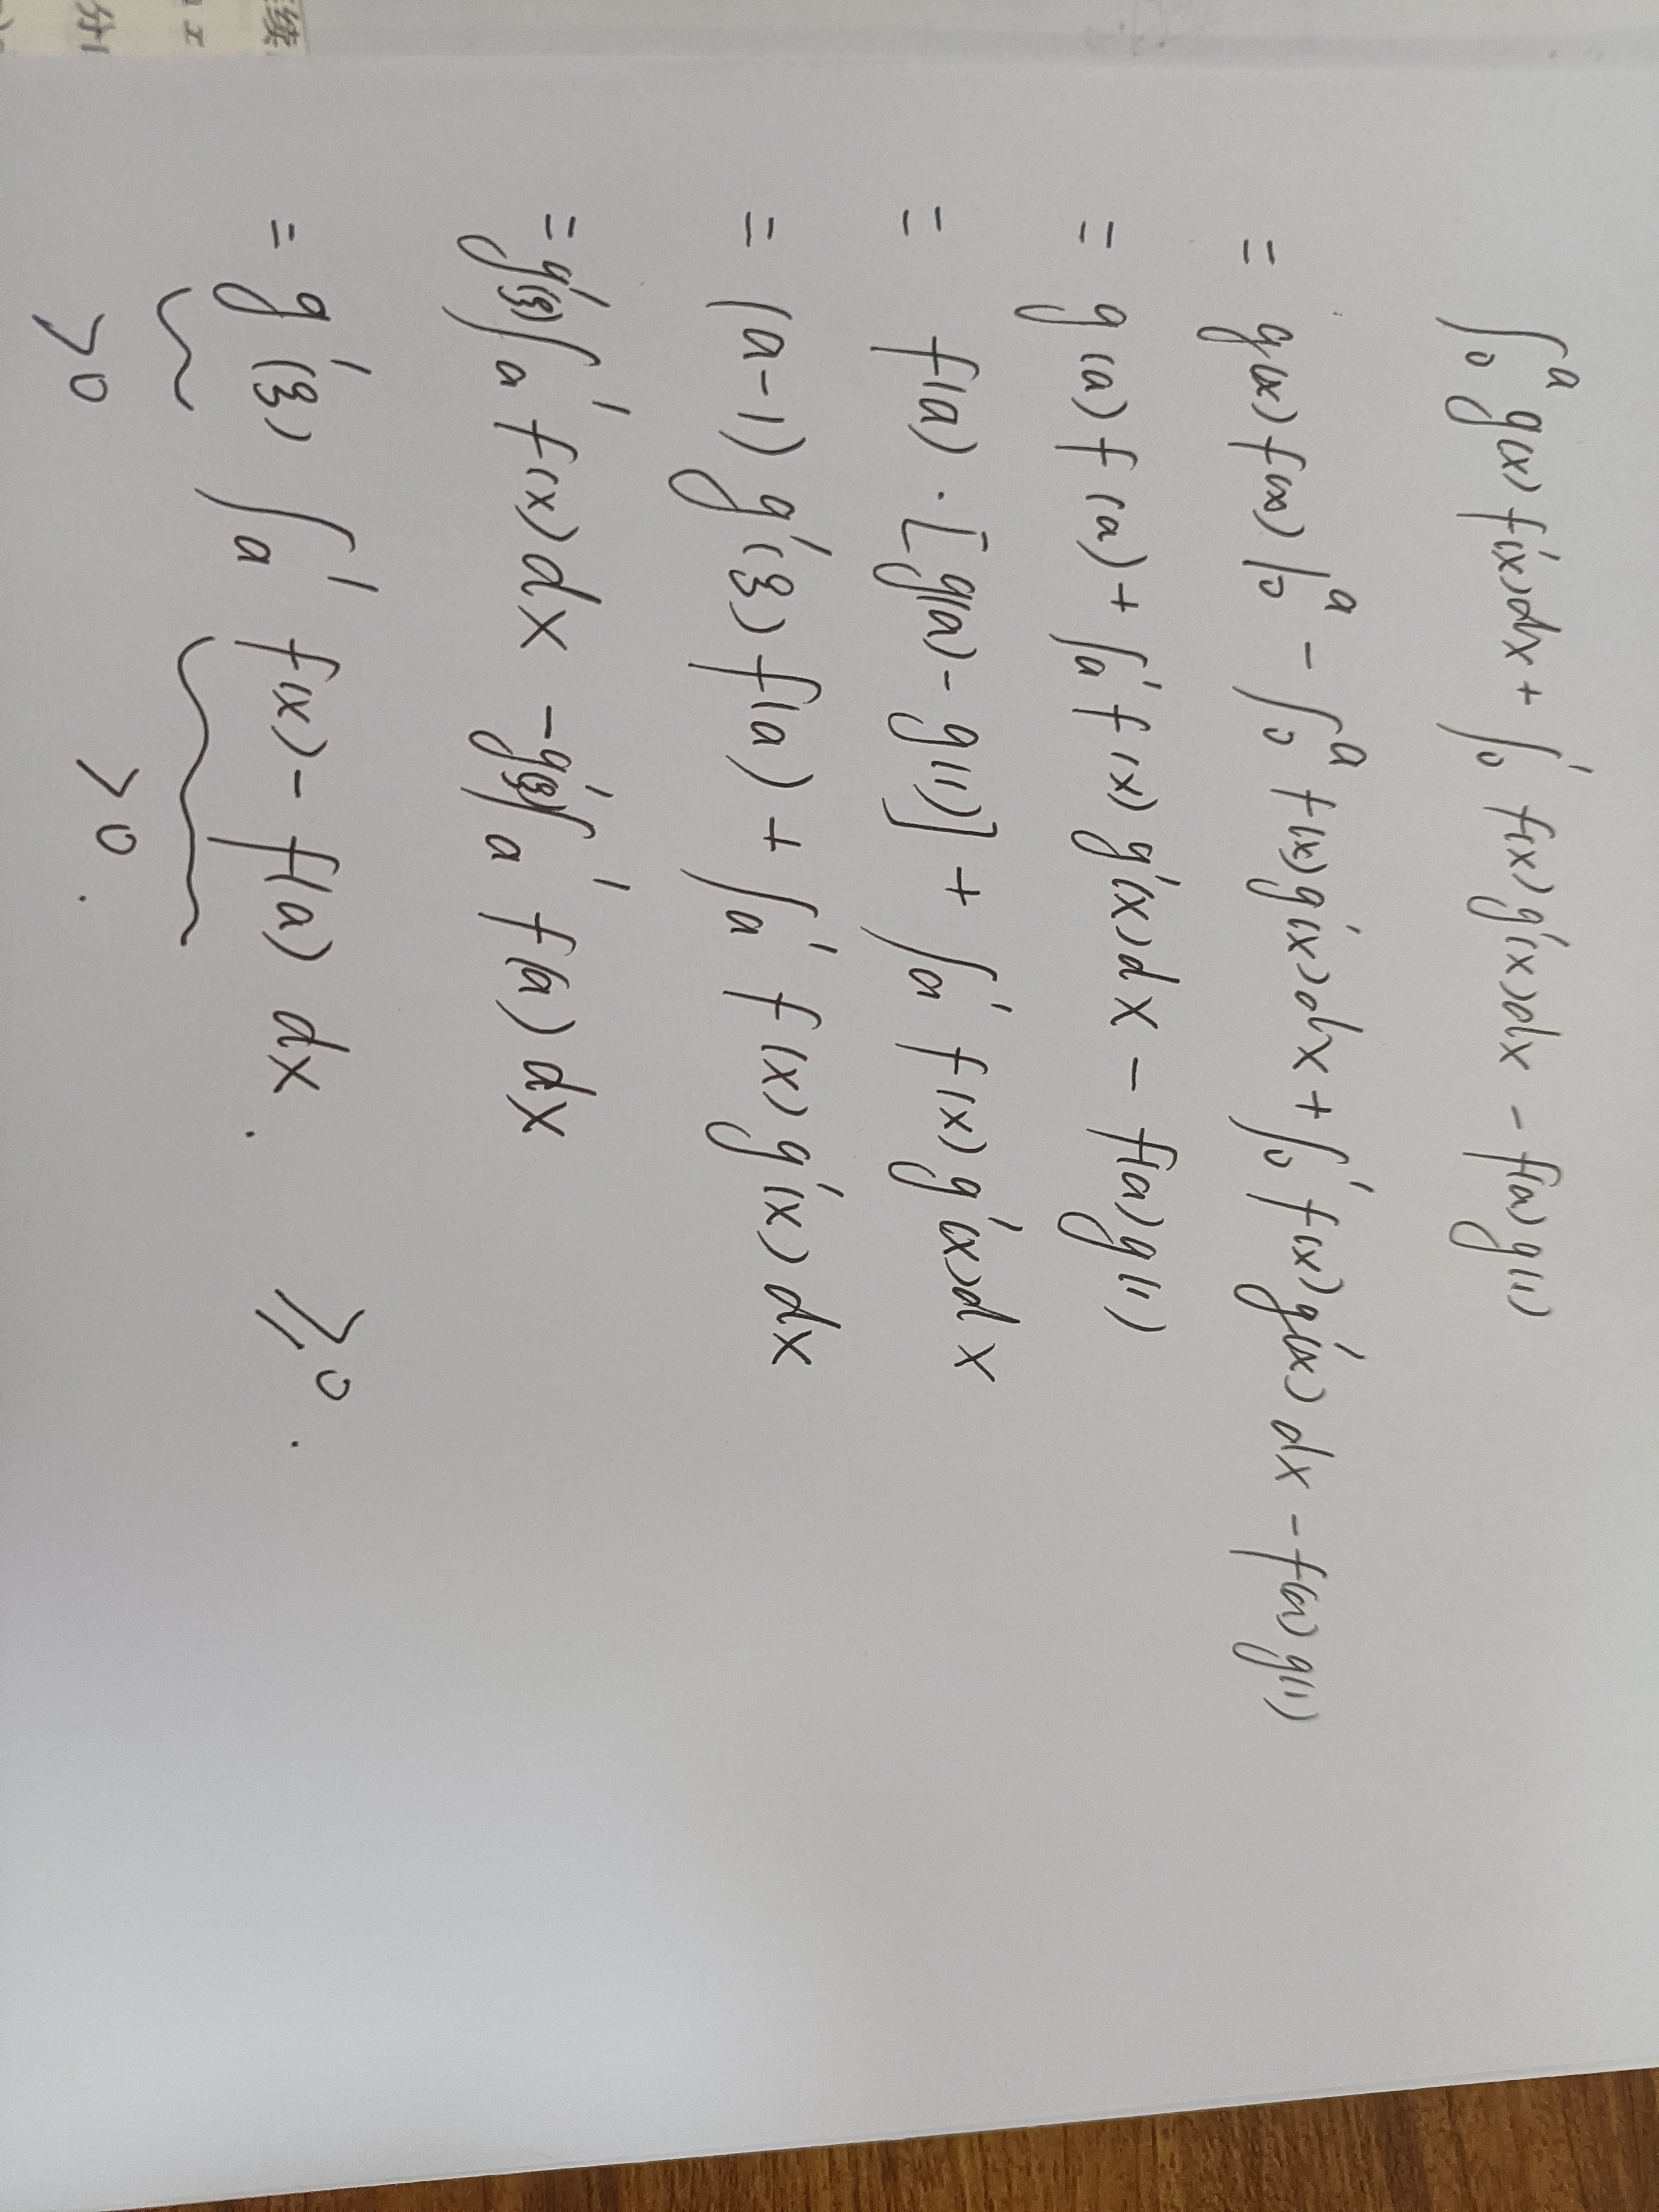 ∫₀ᵃ g(x) f'(x)dx + ∫₀¹ f(x) g'(x)dx - f(a) g(1)
= g(x) f(x) |₀ᵃ - ∫₀ᵃ f(x) g'(x)dx + ∫₀¹ f(x) g'(x) dx - f(a) g(1)
= g(a) f(a) + ∫ₐ¹ f(x) g'(x)dx - f(a) g(1)
= f(a) · [g(a) - g(1)] + ∫ₐ¹ f(x) g'(x)dx
= (a-1) g'(ξ) f(a) + ∫ₐ¹ f(x) g'(x) dx
= g'(ξ) ∫ₐ¹ f(x) dx - g'(ξ) ∫ₐ¹ f(a) dx
= g'(ξ) ∫ₐ¹ f(x) - f(a) dx. ≥0.
>0 >0.
练
x
分